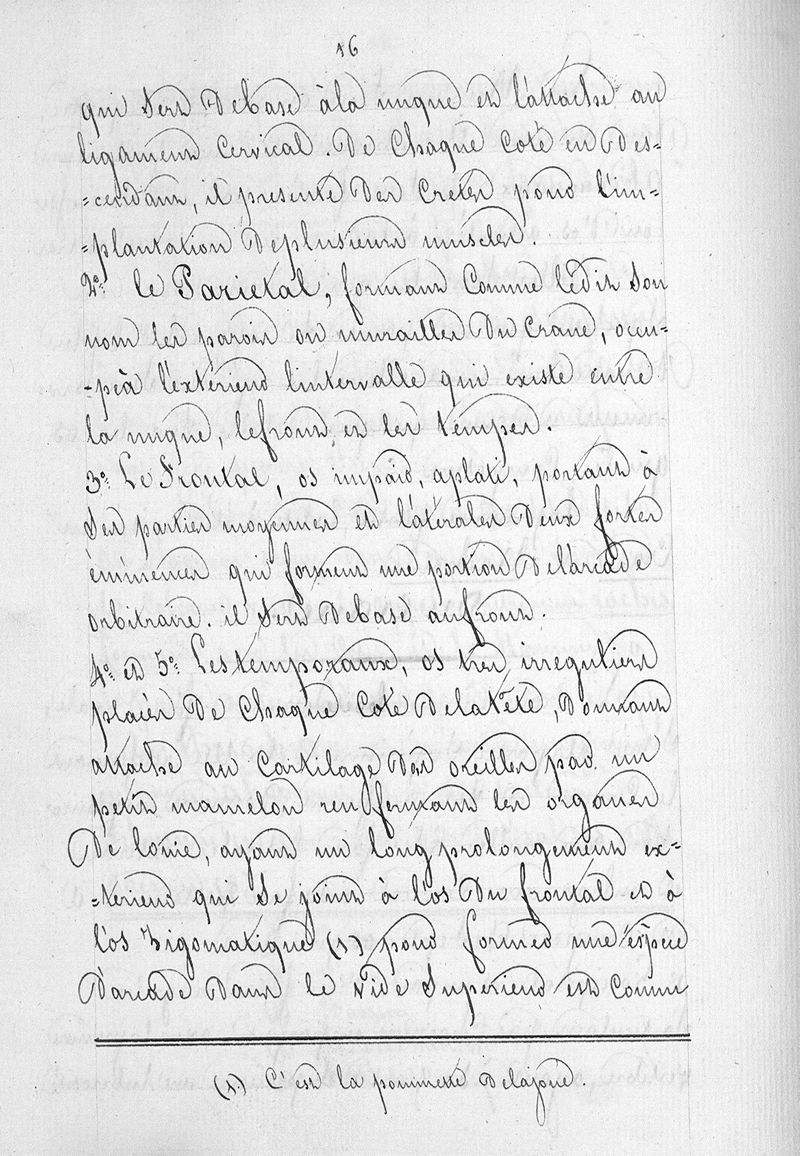 16
qui sert de base à la nuque et l'attache au
ligament cervical. De chaque coté en des=
=cendant, il presente des cretes pour l'im=
=plantation de plusieurs muscles.
2° le Parietal, formant comme le dit son
nom les parois ou murailles du crane, occu=
=pe à l'exterieur l'intervalle qui existe entre
la nuque, le front, et les tempes.
3° Le Frontal, os impair, aplati, portant à
ses parties moyennes et latérales deux fortes
éminences qui forment une portion de l'arcade
orbitraire. il sert de base au front.
4° et 5° Les temporaux, os tres irreguliers
placés de chaque coté de la tête, donnant
attache au cartilage des oreilles par un
petit mamelon renfermant les organes
de l'ouie, ayant un long prolongement ex=
=terieur qui se joint à l'os du frontal et à
l'os Zigomatique (1) pour former une espéce
d'arcade dont le vide superieur est connu
(1) C'est la pommette de la joue.